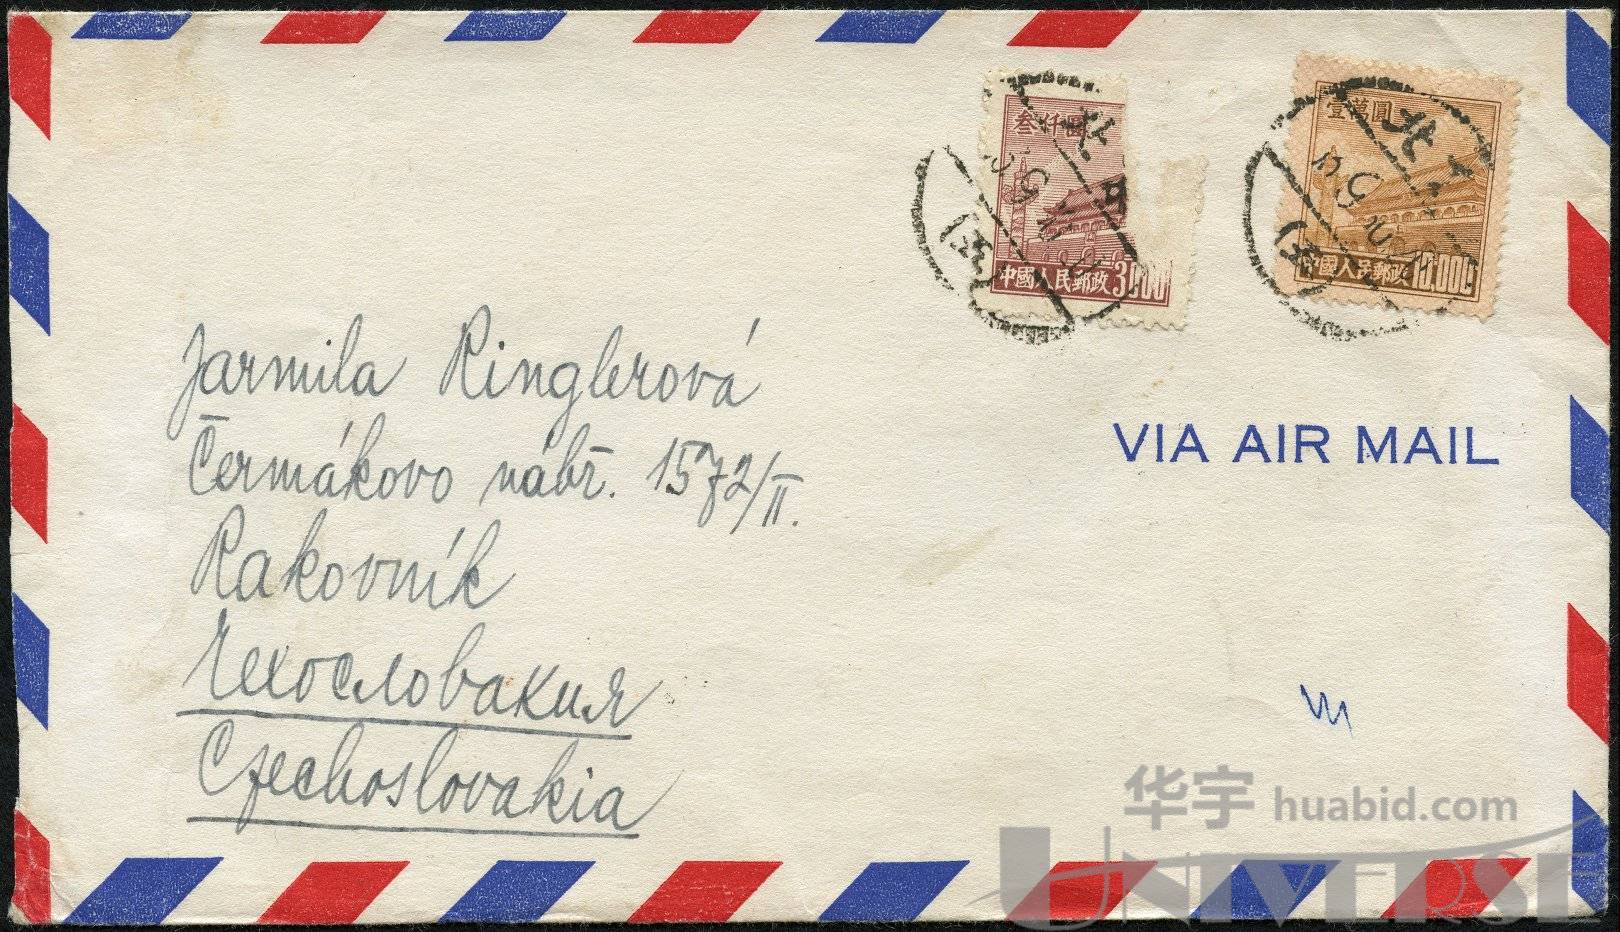 叁仟圓
中國人民郵政 3000
壹萬圓
中國人民郵政 10,000
北
VIA AIR MAIL
Jarmila Ringlerová
Čermákovo nábř. 1572/II.
Rakovník
Чехословакия
Czechoslovakia
华宇 huabid.com
UNIVERSE